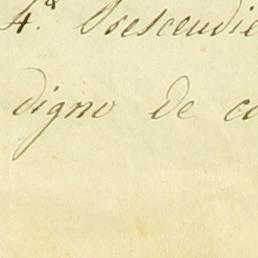 4.ª Prescendie
digno de co